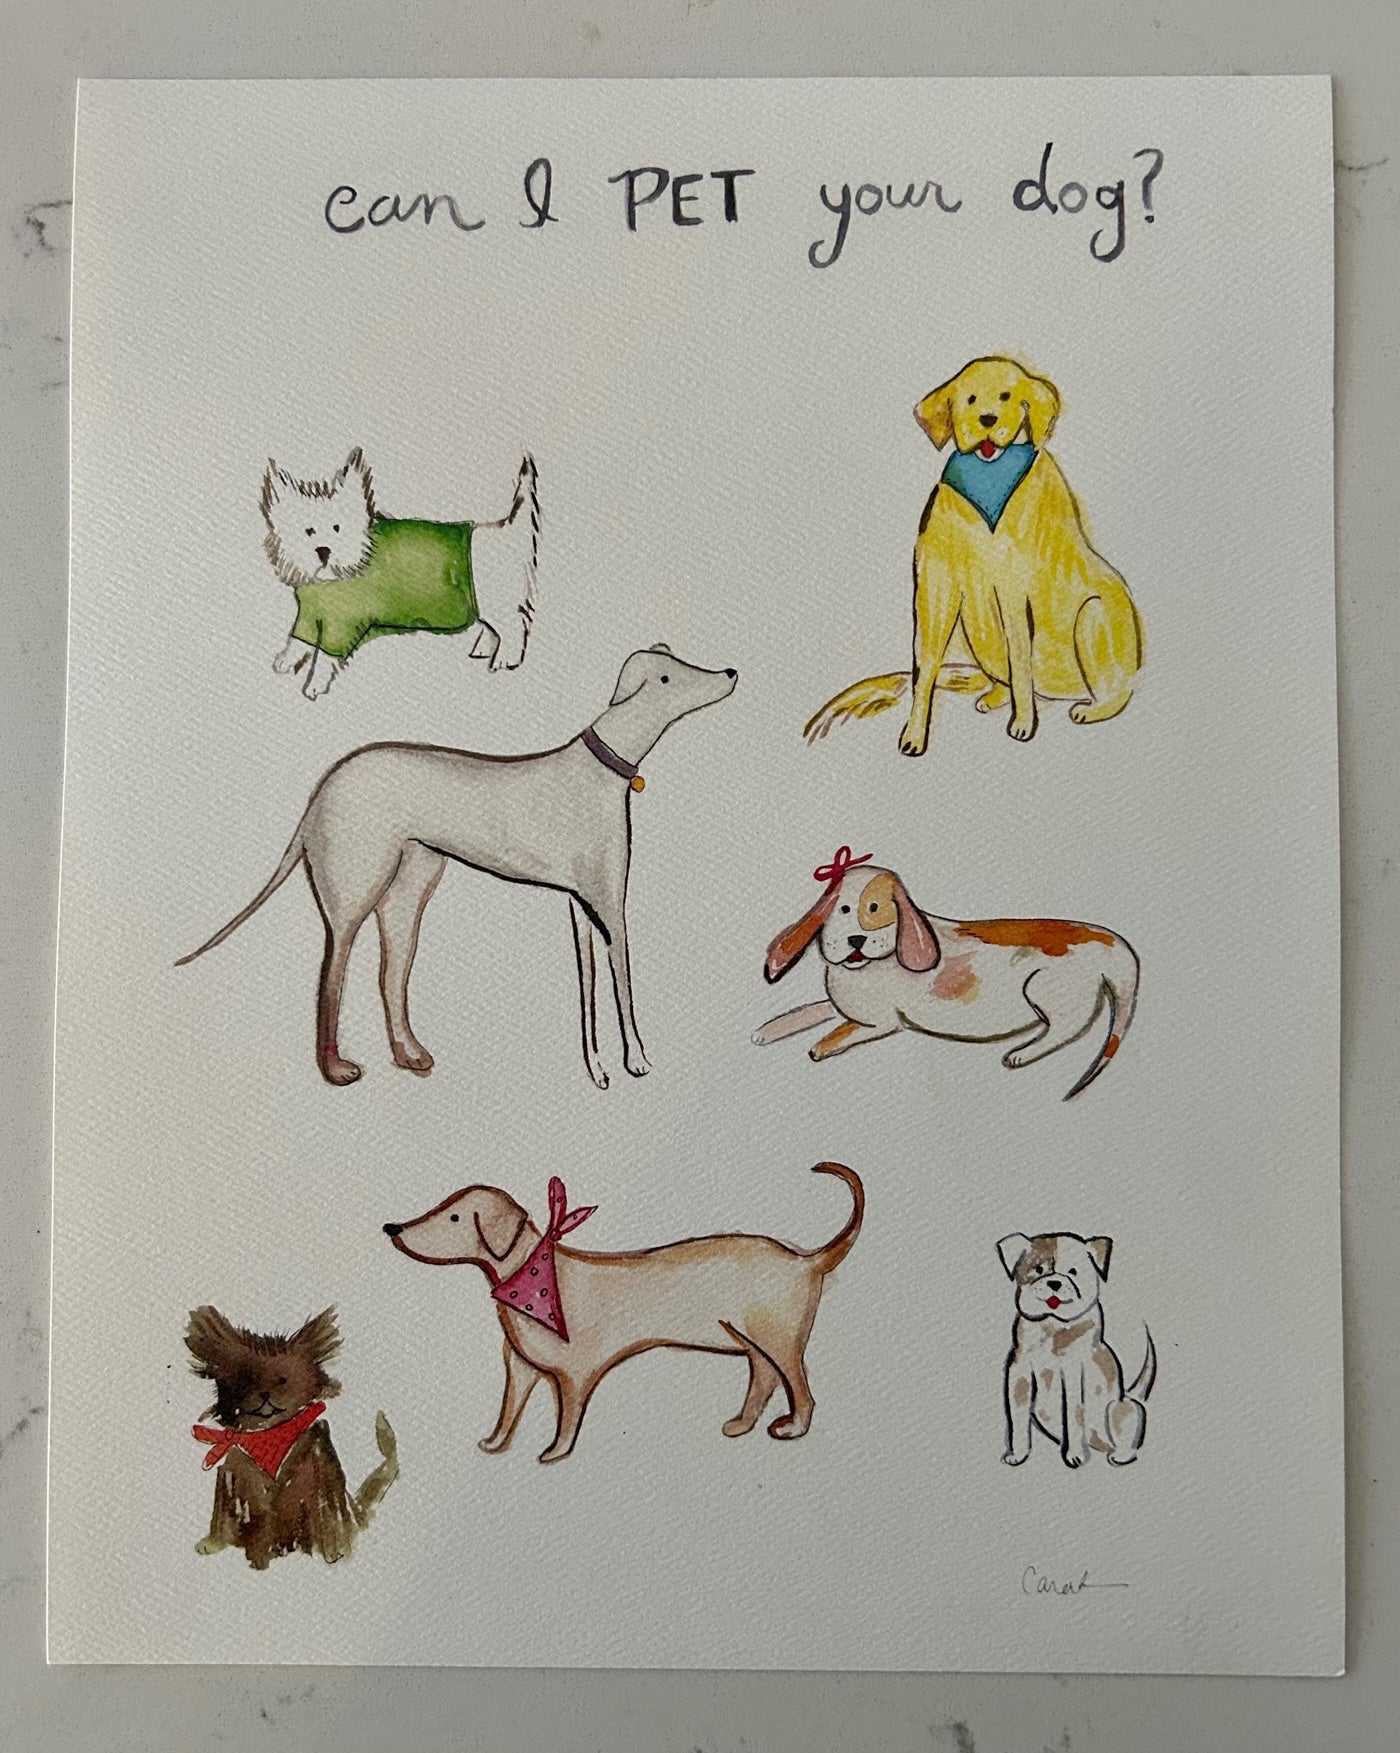 can I PET your dog?